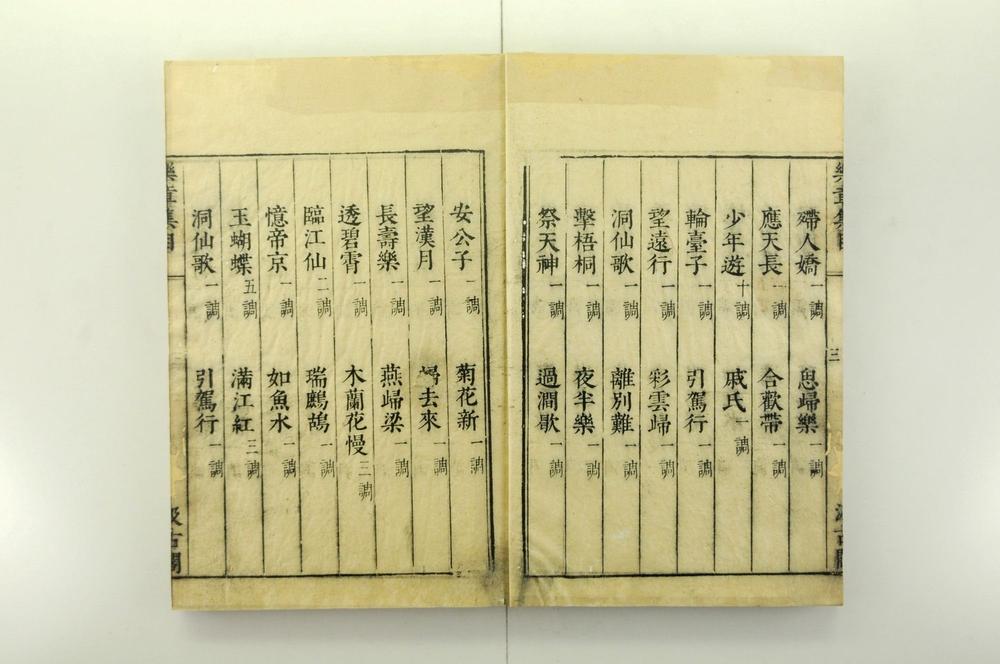 樂章集目
三
汲古閣
殢人嬌 一調 思歸樂 一調
應天長 一調 合歡帶 一調
少年遊 十調 戚氏 一調
輪臺子 一調 引駕行 一調
望遠行 一調 彩雲歸 一調
洞仙歌 一調 離別難 一調
擊梧桐 一調 夜半樂 一調
祭天神 一調 過澗歇 一調
安公子 一調 菊花新 一調
望漢月 一調 歸去來 一調
長壽樂 一調 燕歸梁 一調
透碧霄 一調 木蘭花慢 三調
臨江仙 二調 瑞鷓鴣 一調
憶帝京 一調 如魚水 一調
玉蝴蝶 五調 滿江紅 三調
洞仙歌 一調 引駕行 一調
樂章集目
汲古閣